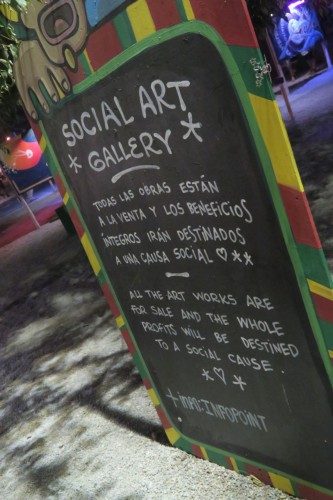 SOCIAL ART
* GALLERY *
TODAS LAS OBRAS ESTÁN
A LA VENTA Y LOS BENEFICIOS
INTEGROS IRÁN DESTINADOS
A UNA CAUSA SOCIAL ♡ **
ALL THE ART WORKS ARE
FOR SALE AND THE WHOLE
PROFITS WILL BE DESTINED
TO A SOCIAL CAUSE
* ♡ *
+ INFO: INFOPOINT